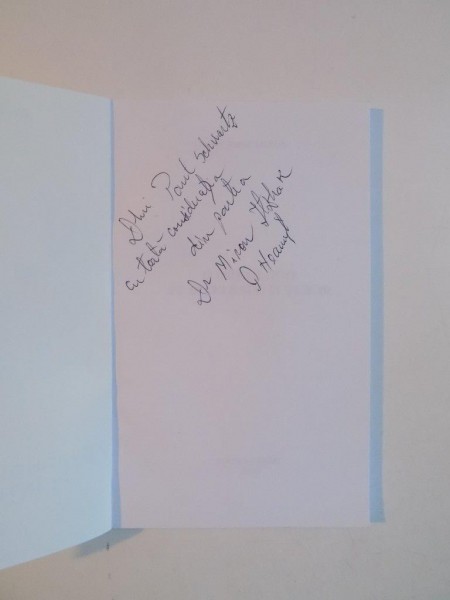 Dlui Paul Schwartz
cu toată considerația
din partea
Dr Miron